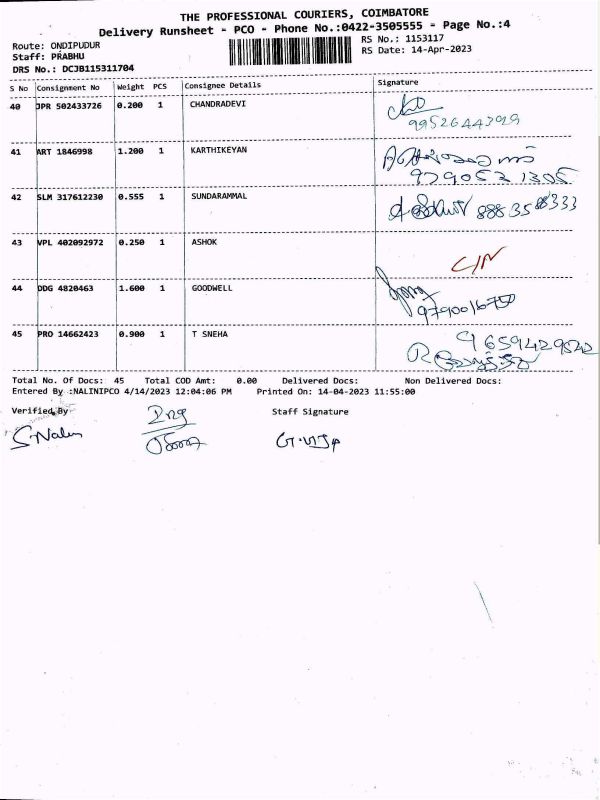 THE PROFESSIONAL COURIERS, COIMBATORE
Delivery Runsheet - PCO - Phone No.:0422-3505555 - Page No.:4
Route: ONDIPUDUR
RS No.: 1153117
Staff: PRABHU
RS Date: 14-Apr-2023
DRS No.: DCJB115311704
S No Consignment No Weight PCS Consignee Details Signature
40 JPR 502433726 0.200 1 CHANDRADEVI
9952644399
41 ART 1846998 1.200 1 KARTHIKEYAN
9790521305
42 SLM 317612230 0.555 1 SUNDARAMMAL
43 VPL 402092972 0.250 1 ASHOK C/N
44 DDG 4820463 1.600 1 GOODWELL
45 PRO 14662423 0.900 1 T SNEHA
Total No. Of Docs: 45 Total COD Amt: 0.00 Delivered Docs: Non Delivered Docs:
Entered By :NALINIPCO 4/14/2023 12:04:06 PM Printed On: 14-04-2023 11:55:00
Verified By Staff Signature
S.Nalini